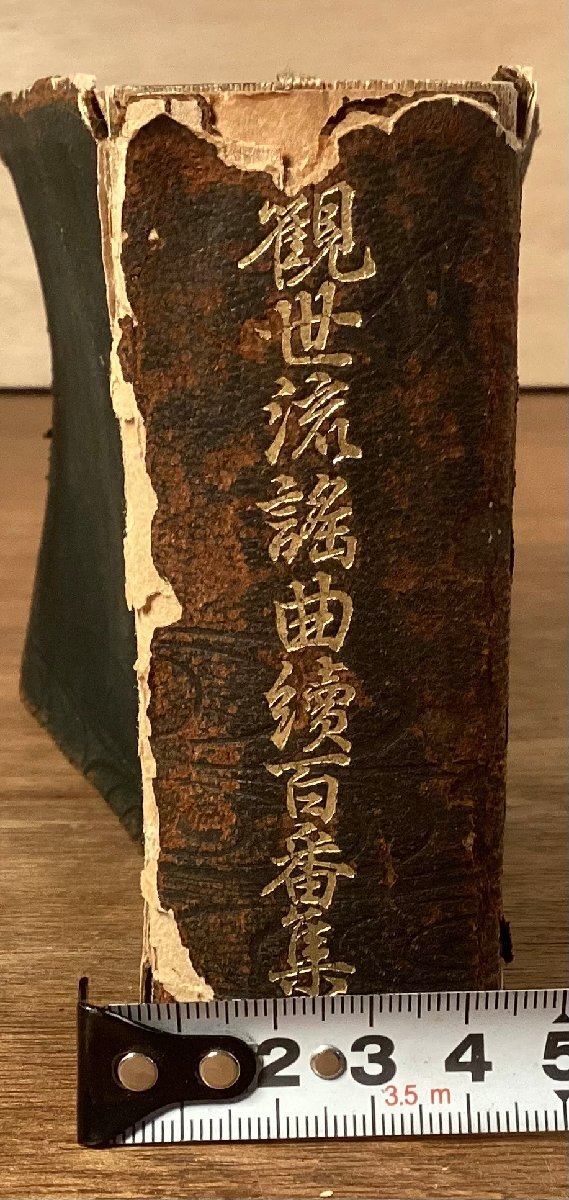 観世流謡曲續百番集
2 3 4 5
3.5 m